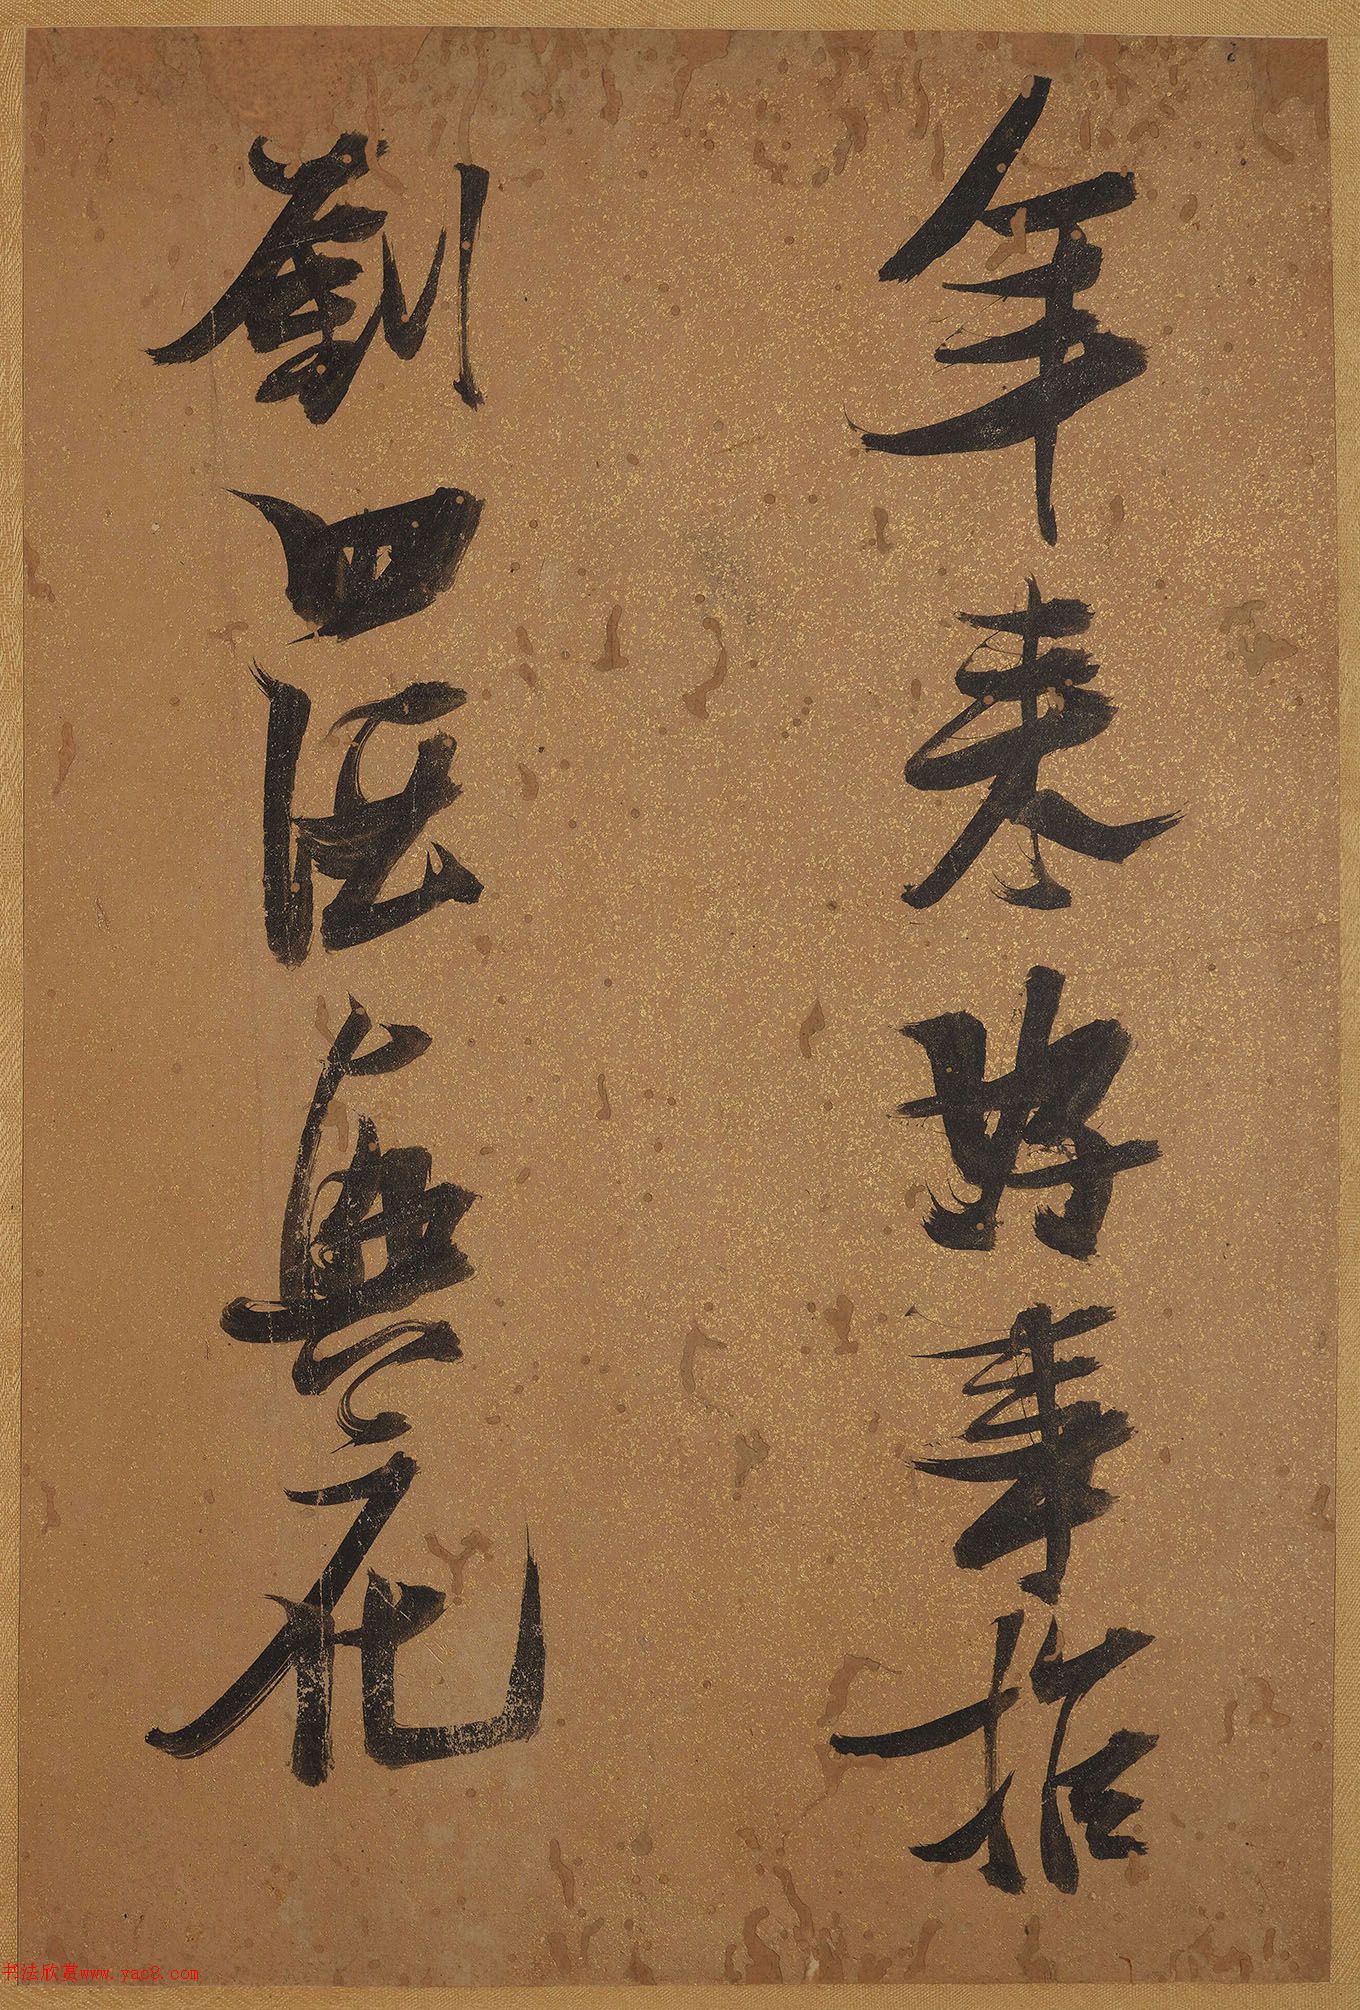 年来好事
劉四酒花
书法欣赏www.yac8.com